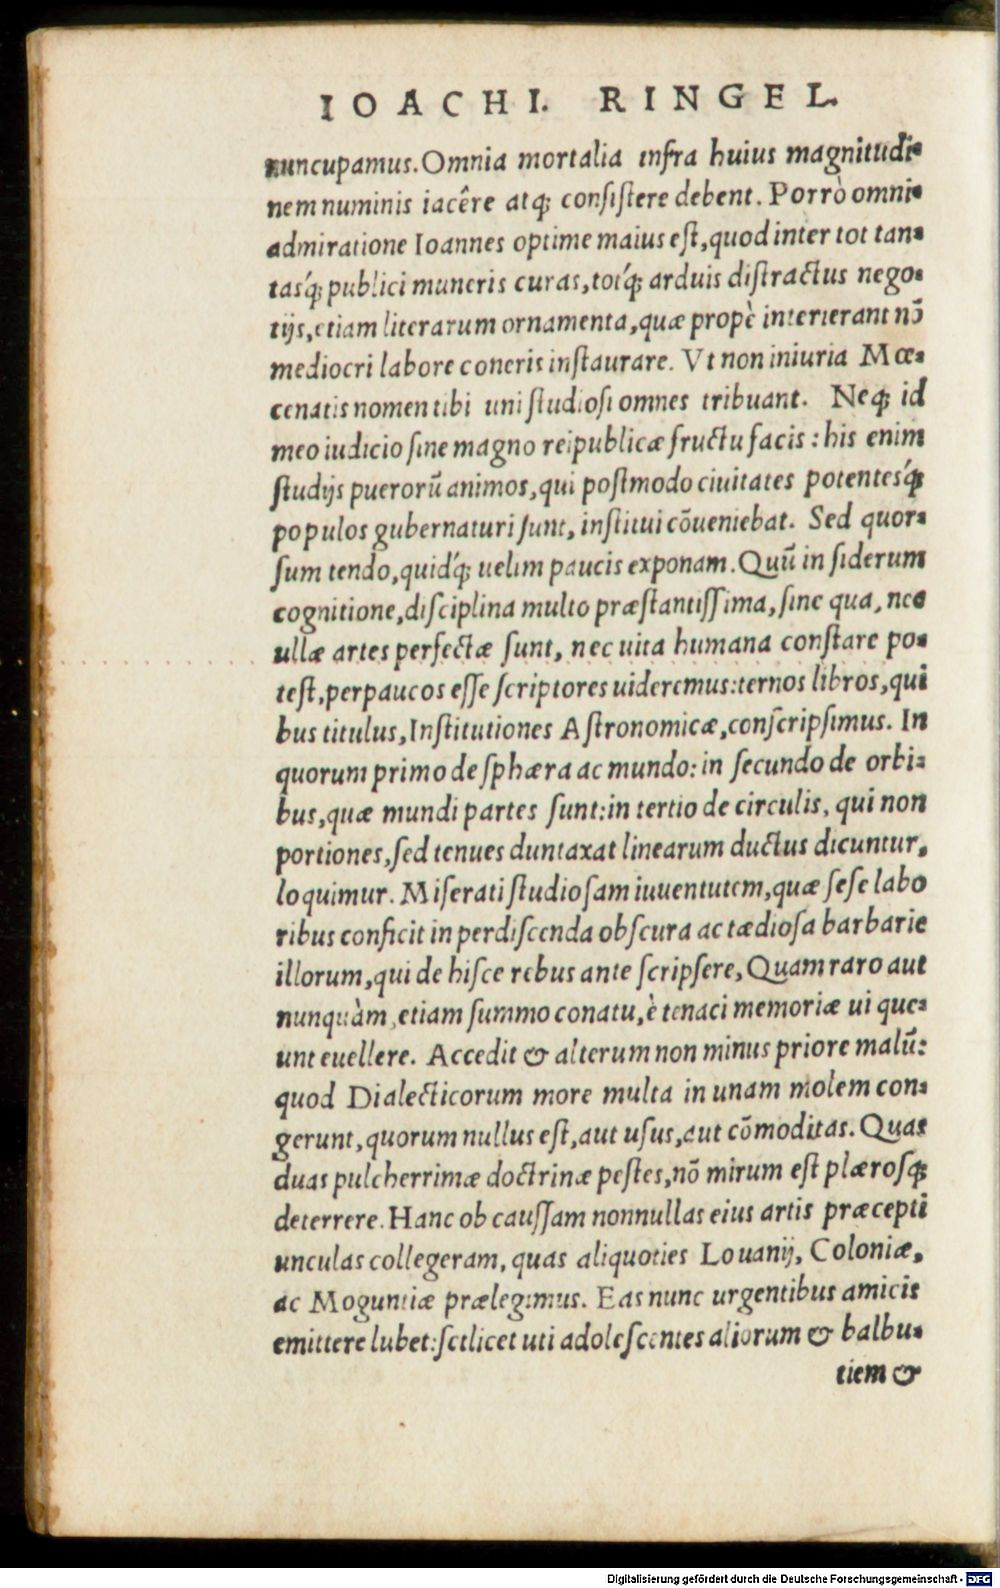 IOACHI. RINGEL.
nuncupamus. Omnia mortalia infra huius magnitudi-
nem numinis iacêre atq; consistere debent. Porrò omni-
admiratione Ioannes optime maius est, quod inter tot tan-
tasq́; publici muneris curas, totq́; arduis distractus nego-
tijs, etiam literarum ornamenta, quæ propè interierant nō
mediocri labore coneris instaurare. Vt non iniuria Mœ-
cenatis nomen tibi uni studiosi omnes tribuant. Neq; id
meo iudicio sine magno reipublicæ fructu facis: his enim
studijs puerorū animos, qui postmodo ciuitates potentesq́;
populos gubernaturi sunt, institui cōueniebat. Sed quor-
sum tendo, quidq́; uelim paucis exponam. Quū in siderum
cognitione, disciplina multo præstantissima, sine qua, nec
ullæ artes perfectæ sunt, nec uita humana constare po-
test, perpaucos esse scriptores uideremus: ternos libros, qui
bus titulus, Institutiones Astronomicæ, conscripsimus. In
quorum primo de sphæra ac mundo: in secundo de orbi-
bus, quæ mundi partes sunt: in tertio de circulis, qui non
portiones, sed tenues duntaxat linearum ductus dicuntur,
loquimur. Miserati studiosam iuuentutem, quæ sese labo
ribus conficit in perdiscenda obscura ac tædiosa barbarie
illorum, qui de hisce rebus ante scripsere, Quam raro aut
nunquàm, etiam summo conatu, è tenaci memoriæ ui que-
unt euellere. Accedit & alterum non minus priore malū:
quod Dialecticorum more multa in unam molem con-
gerunt, quorum nullus est, aut usus, aut cōmoditas. Quas
duas pulcherrimæ doctrinæ pestes, nō mirum est plærosq;
deterrere. Hanc ob caussam nonnullas eius artis præcepti
unculas collegeram, quas aliquoties Louanij, Coloniæ,
ac Moguntiæ prælegimus. Eas nunc urgentibus amicis
emittere lubet: scilicet uti adolescentes aliorum & balbu-
tiem &
Digitalisierung gefördert durch die Deutsche Forschungsgemeinschaft - DFG